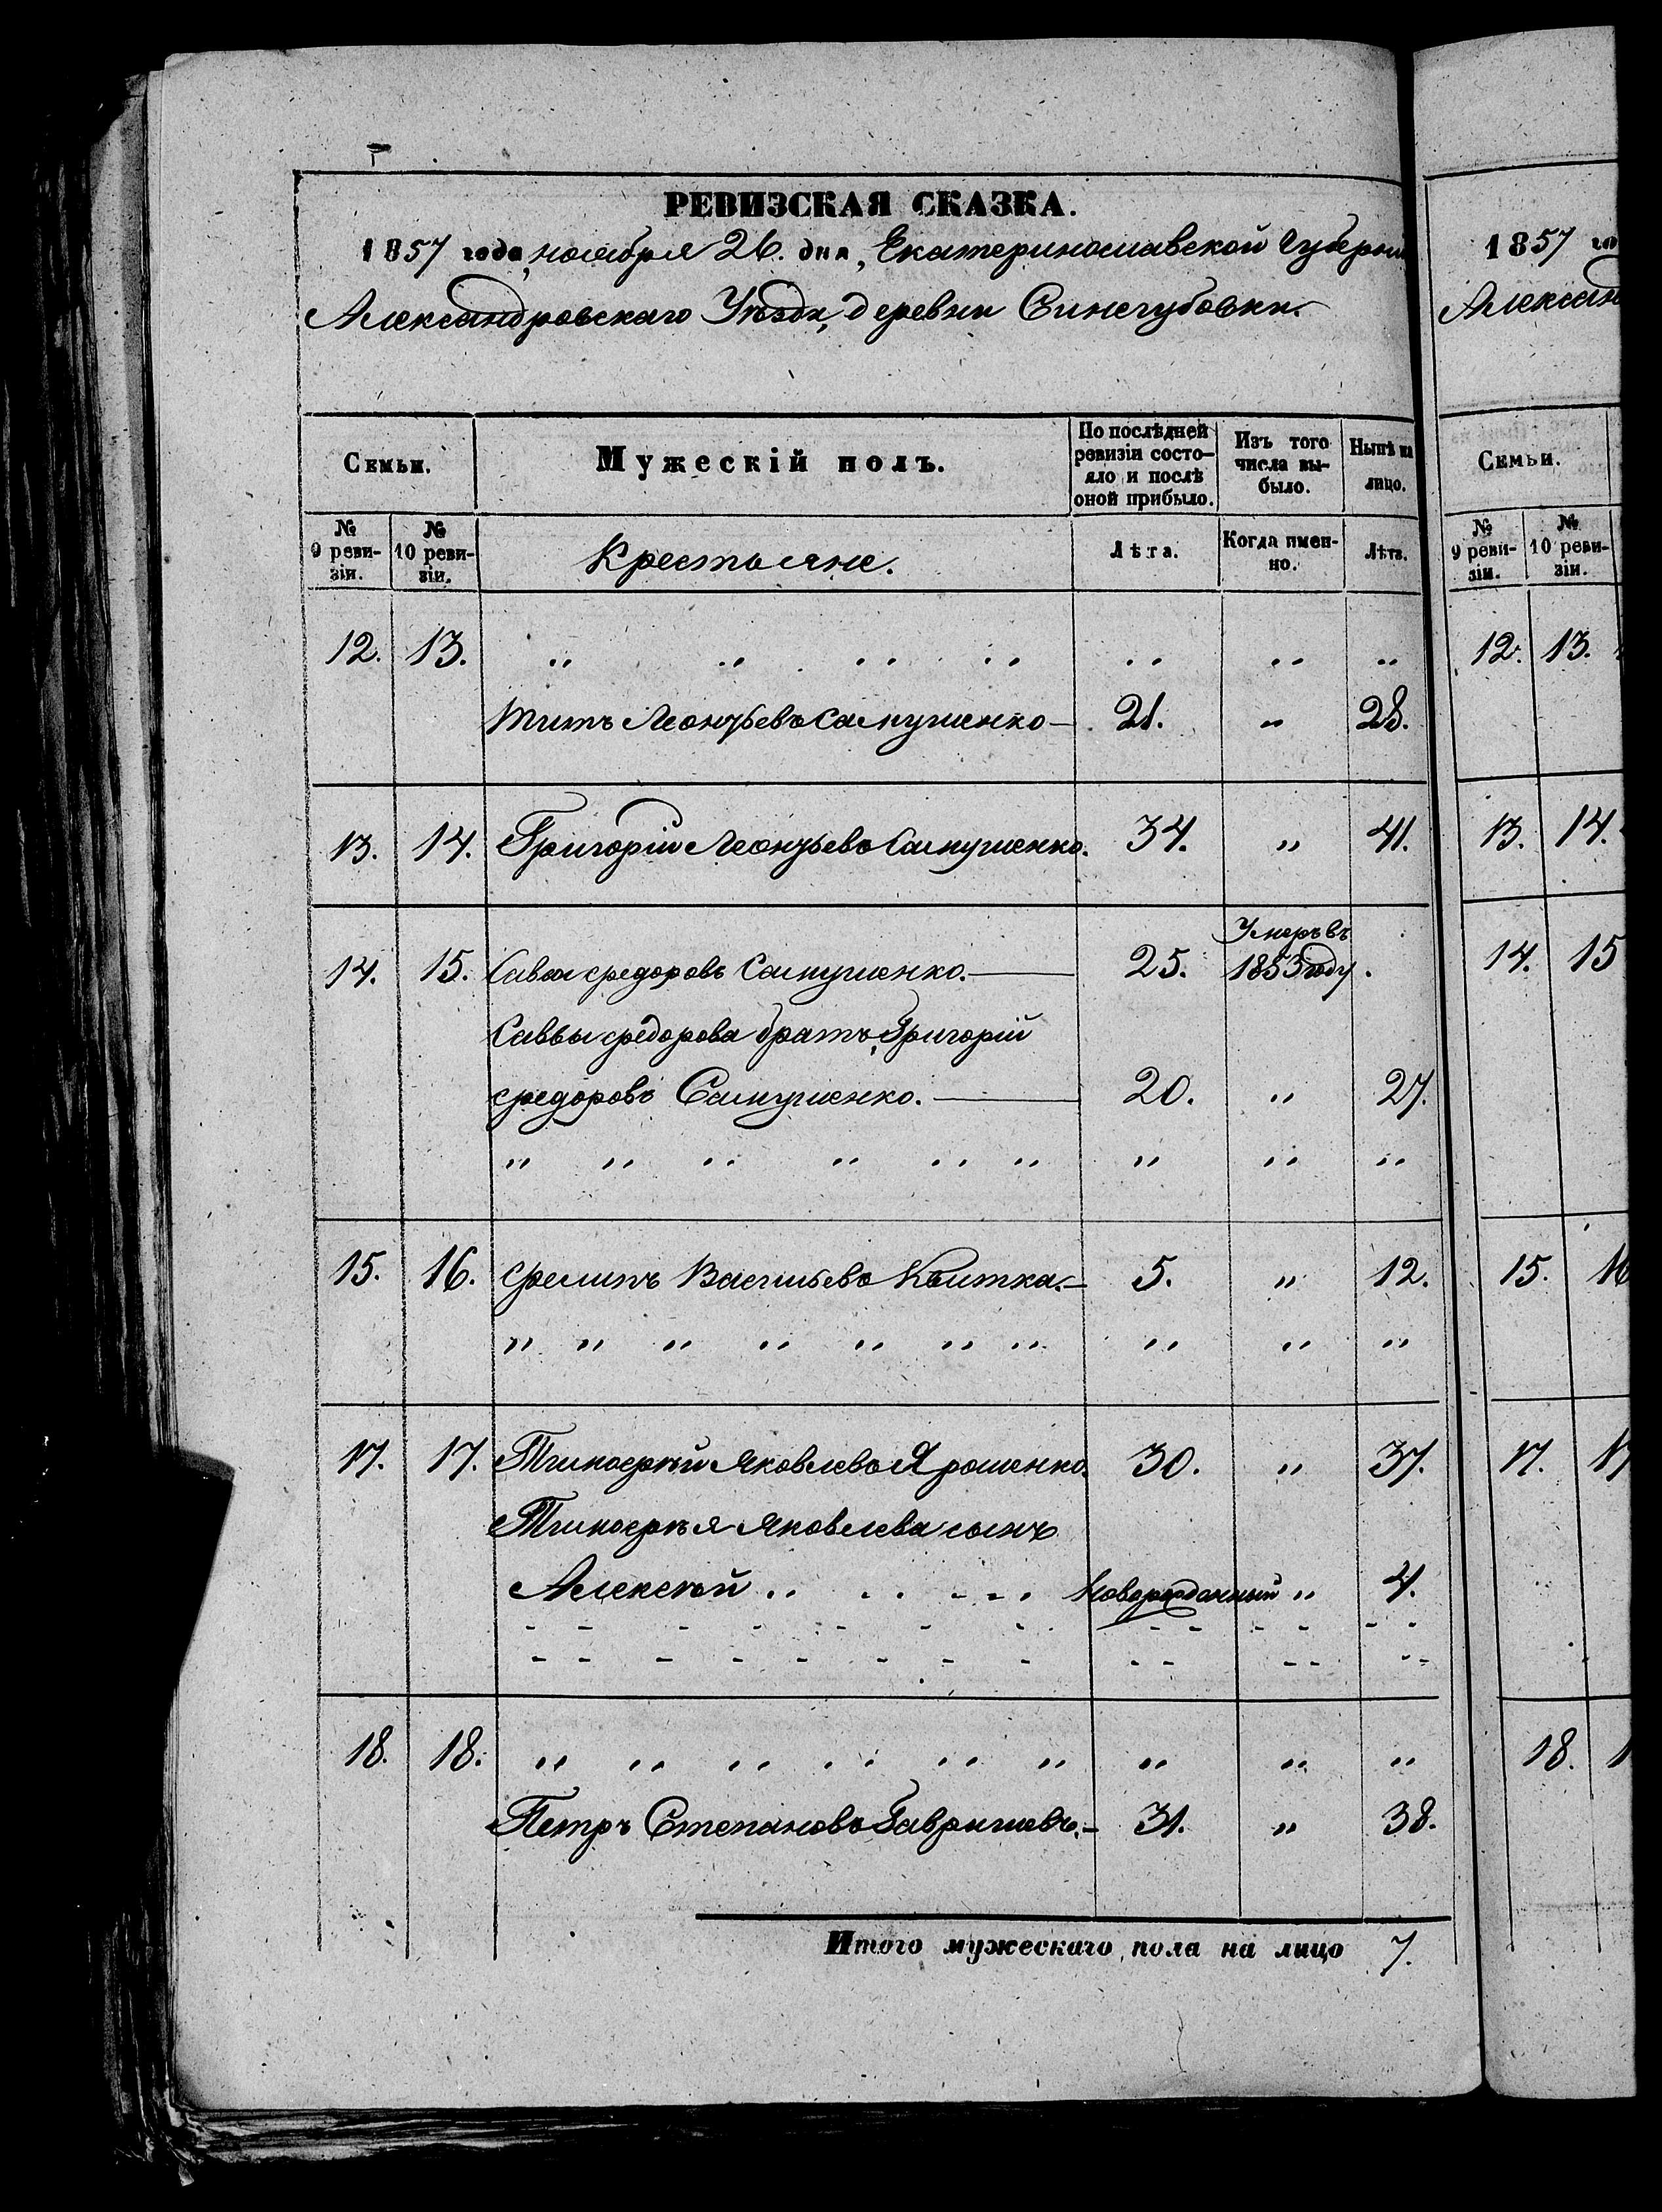 РЕВИЗСКАЯ СКАЗКА.
1857 года, ноября 26. дня, Екатеринославской Губерніи
Александровскаго Уѣзда, деревни Синегубовки.
Семьи. Мужескій полъ. По послѣдней ревизіи состояло и послѣ оной прибыло. Изъ того числа выбыло. Нынѣ на лицо.
№ 9 ревизіи. № 10 ревизіи. Крестьяне. Лѣта. Когда именно. Лѣта.
12. 13. „ „ „ „ „ „ „
Титъ Леонтьевъ Сапушенко— 21. „ 28.
13. 14. Григорій Леонтьевъ Сапушенко. 34. „ 41.
14. 15. Савва Федоровъ Сапушенко.— 25. Умеръ въ 1853 году.
Саввы Федорова братъ, Григорій
Федоровъ Сапушенко.— 20. „ 27.
„ „ „ „ „ „ „ „ „
15. 16. Филипъ Васильевъ Квитка.— 5. „ 12.
„ „ „ „ „ „ „ „ „ „
17. 17. Тимофѣй Яковлевъ Ярошенко. 30. „ 37.
Тимофѣя Яковлева сынъ
Алексѣй „ „ „ Новорожденный „ 4.
18. 18. „ „ „ „ „ „ „ „ „
Петръ Степановъ Гавришевъ.— 31. „ 38.
Итого мужескаго пола на лицо 7.
1857 го
Александ
Семьи.
№ 9 ревизіи. № 10 ревизіи.
12. 13.
13. 14.
14. 15
15. 16
17. 17
18. 1